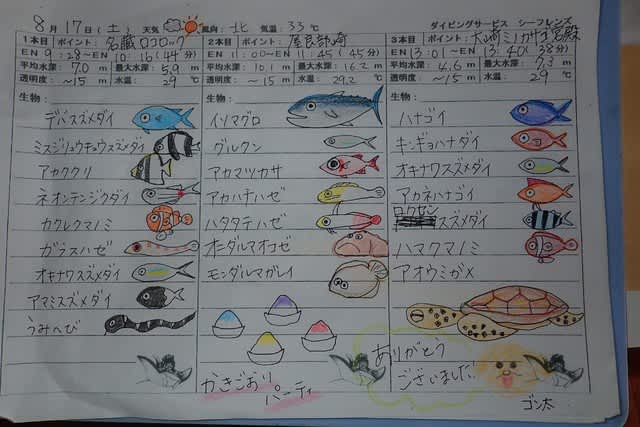 8月17日(土) 天気 風向:北 気温:33℃ ダイビングサービス シーフレンズ
1本目 ポイント: 名蔵ロロロック
EN 9:28~EN 10:16(44分)
平均水深: 7.0 m 最大水深: 5.9 m
透明度: ~15 m 水温: 29
生物:
デバスズメダイ
ミスジリュウキュウスズメダイ
アカククリ
ネオンテンジクダイ
カクレクマノミ
ガラスハゼ
オキナワスズメダイ
アマミスズメダイ
うみへび
2本目 ポイント: 屋良部崎
EN 11:00~EN 11:45(45分)
平均水深: 10.1 m 最大水深: 16.2 m
透明度: ~15 m 水温: 29.2℃
生物:
イソマグロ
グルクン
アカマツカサ
アカハチハゼ
ハタタテハゼ
オニダルマオコゼ
モンダルマガレイ
かきごおり
パーティ
3本目 ポイント: 大崎ミノカサゴ宮殿
EN 13:01~EN 13:40(38分)
平均水深: 4.6 m 最大水深: 7.3 m
透明度: ~15 m 水温: 29
生物:
ハナゴイ
キンギョハナダイ
オキナワスズメダイ
アカネハナゴイ
ロクセンスズメダイ
ハマクマノミ
アオウミガメ
ありがとう
ございました!
ゴン太